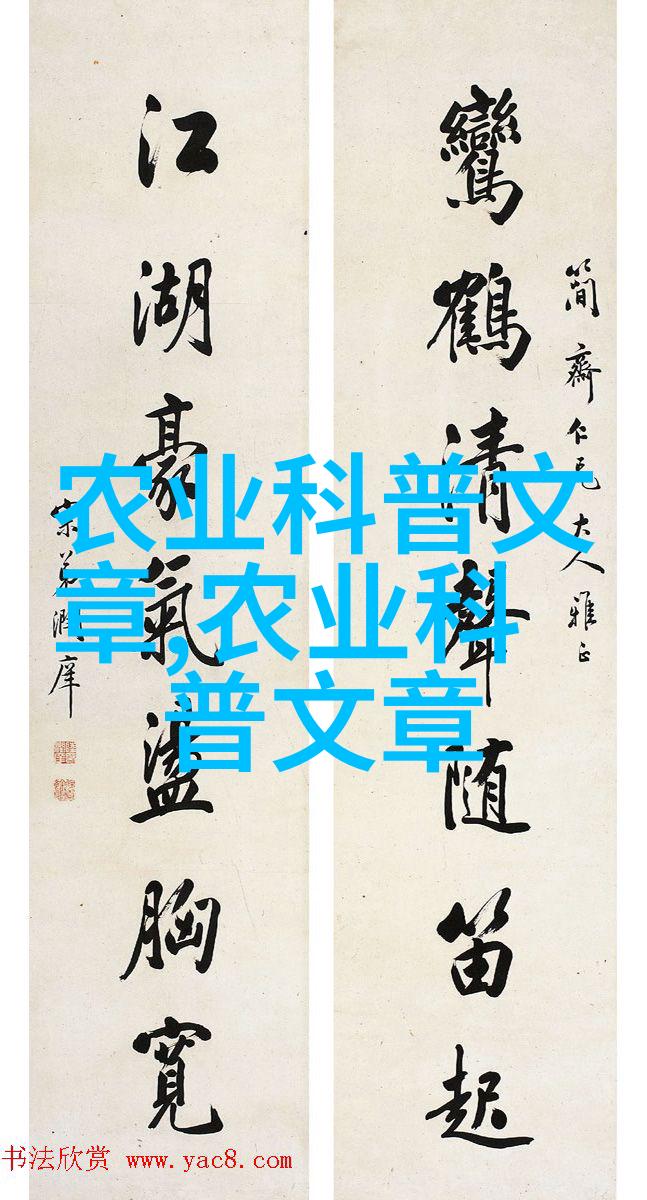 簡齋仁兄大人雅正
鸞鶴清聲随笛起
江湖豪氣盪胸寬
农业科普文
章,农业科
普文章
书法欣赏 www.yac8.com